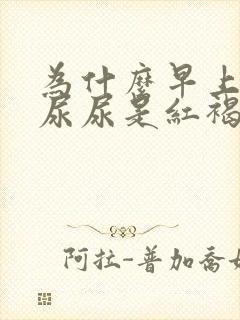 為什麼早上
尿尿是紅褐
阿拉-普加喬